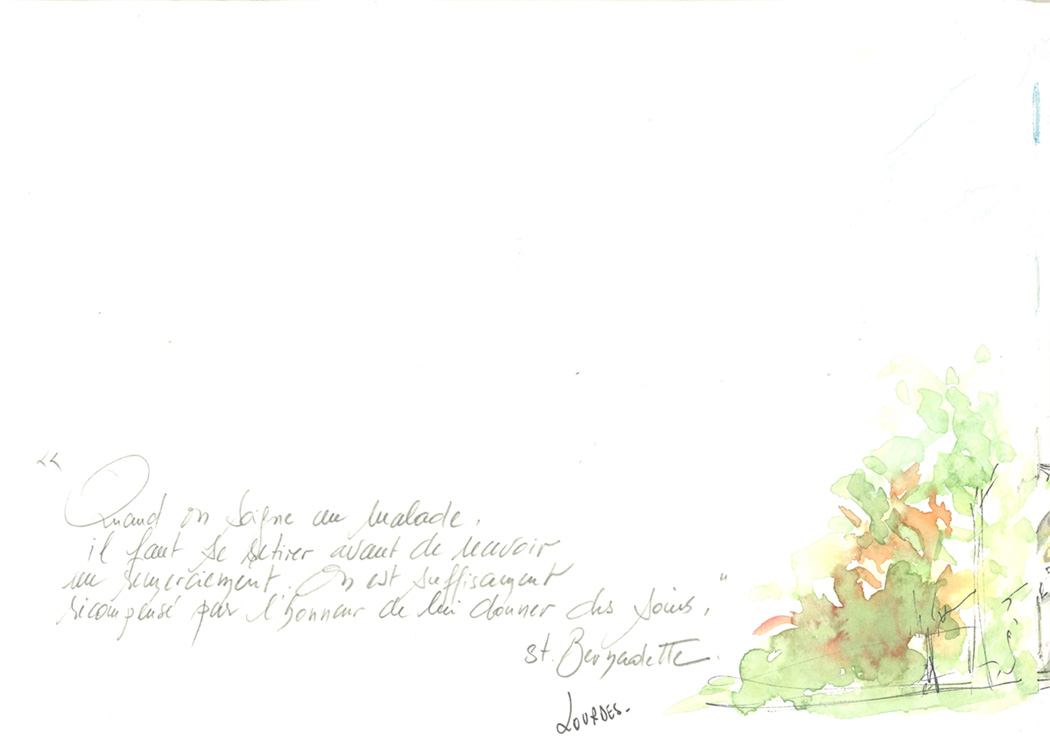 “ Quand on soigne un malade,
il faut se retirer avant de recevoir
un remerciement. On est suffisamment
récompensé par l'honneur de lui donner des soins, "
St. Bernadette.
LOURDES.